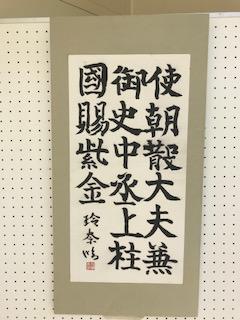 使朝散大夫兼
御史中丞上柱
國賜紫金
玲泰